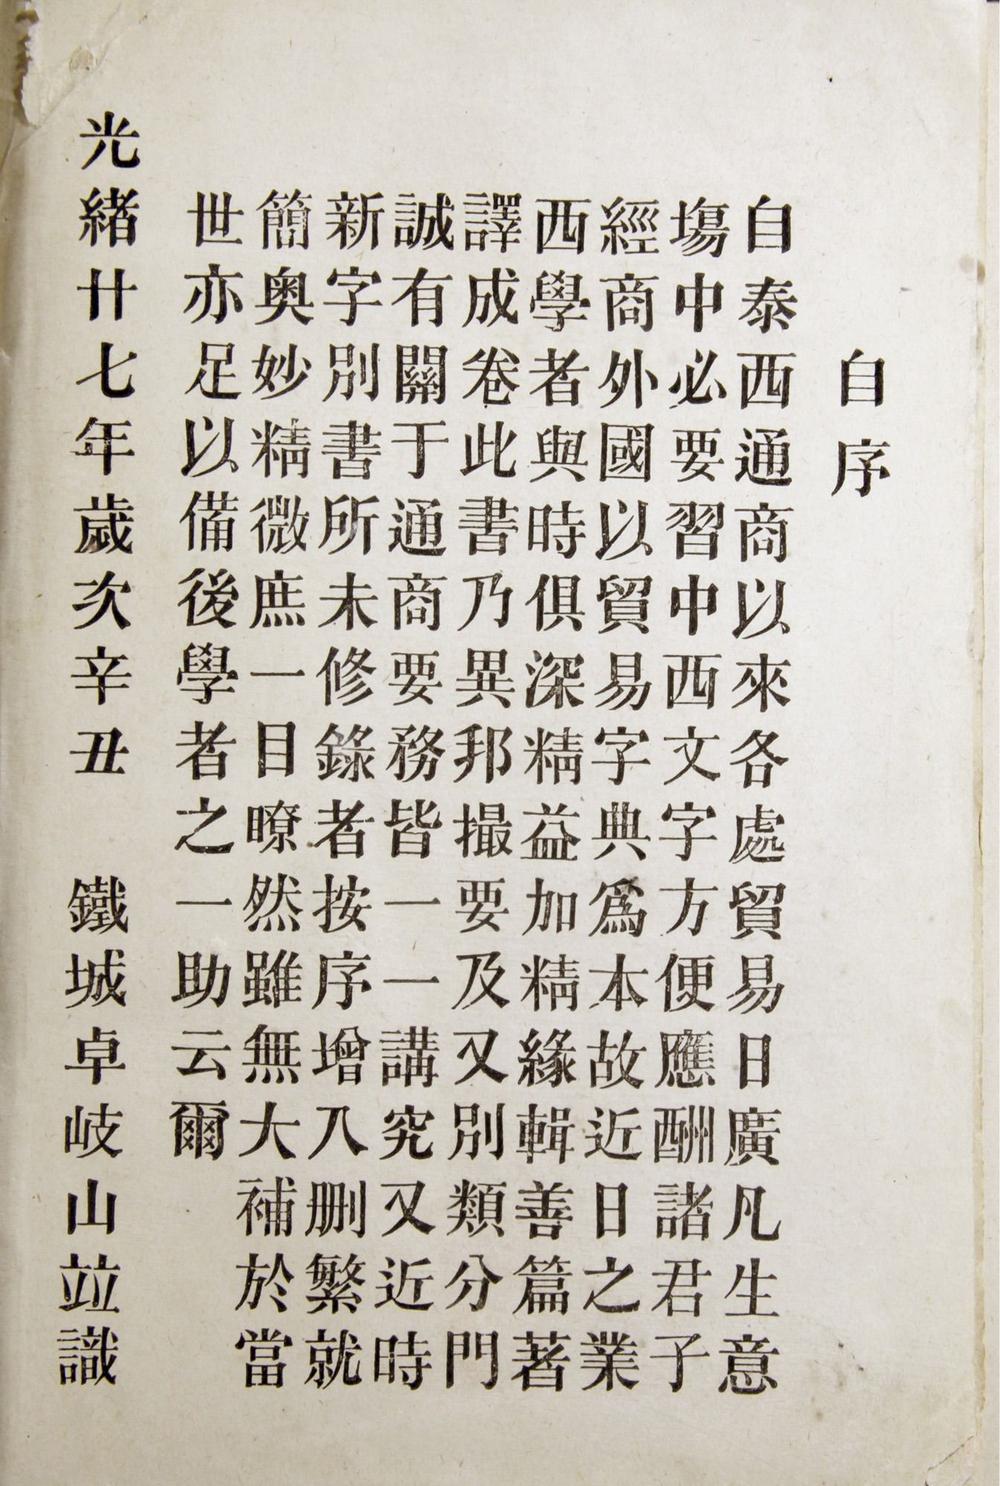 自序
自泰西通商以來各處貿易日廣凡生意
塲中必要習中西文字方便應酬諸君子
經商外國以貿易字典爲本故近日之業
西學者與時俱深精益加精緣輯善篇著
譯成卷此書乃異邦撮要及又別類分門
誠有關于通商要務皆一一講究又近時
新字別書所未修錄者按序增入刪繁就
簡奥妙精微庶一目暸然雖無大補於當
世亦足以備後學者之一助云爾
光緒廿七年歲次辛丑 鐵城卓岐山竝識